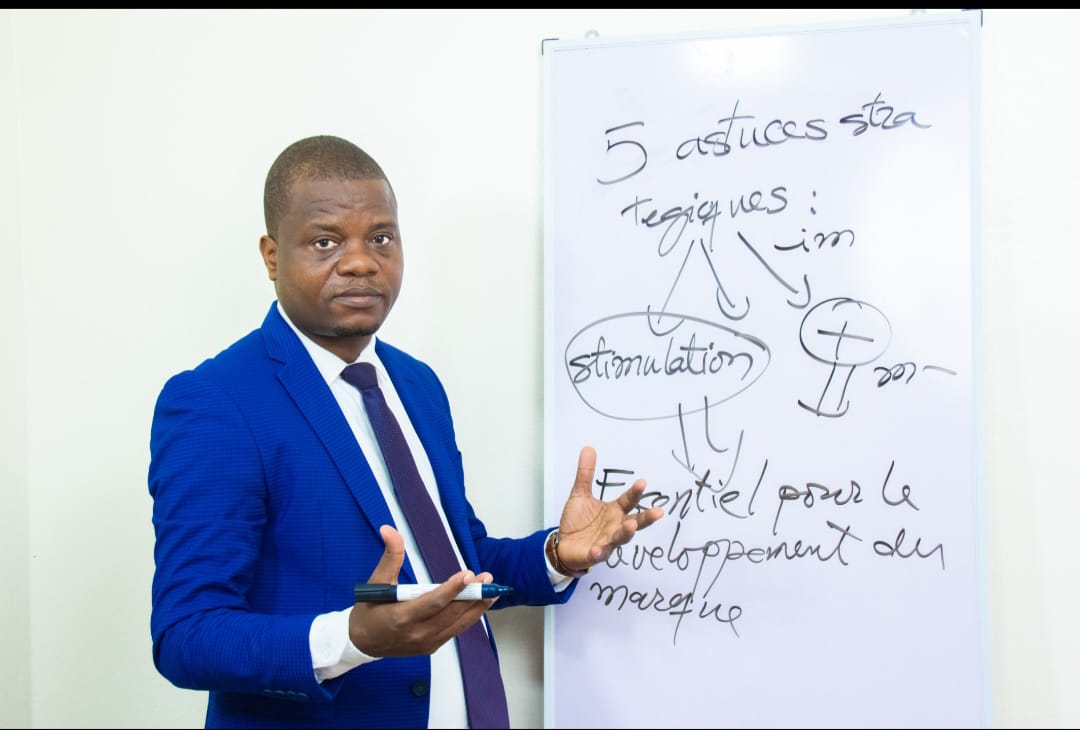 5 astuces stra
tegiques :
im
stimulation
+
m -
Essentiel pour le
développement du
marque